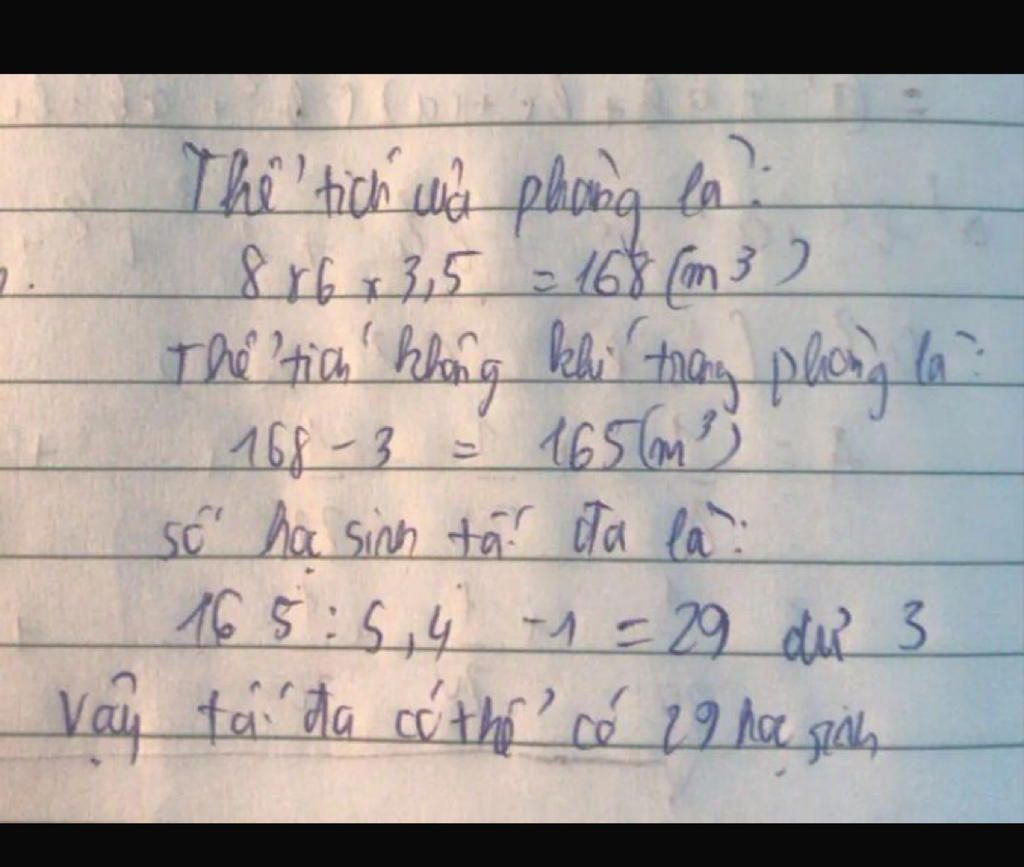 Thể tích của phòng là:
8 x 6 x 3,5 = 168 (m³)
Thể tích không khí trong phòng là:
168 - 3 = 165 (m³)
số học sinh tối đa là:
165 : 5,4 - 1 = 29 dư 3
Vậy tối đa có thể có 29 học sinh